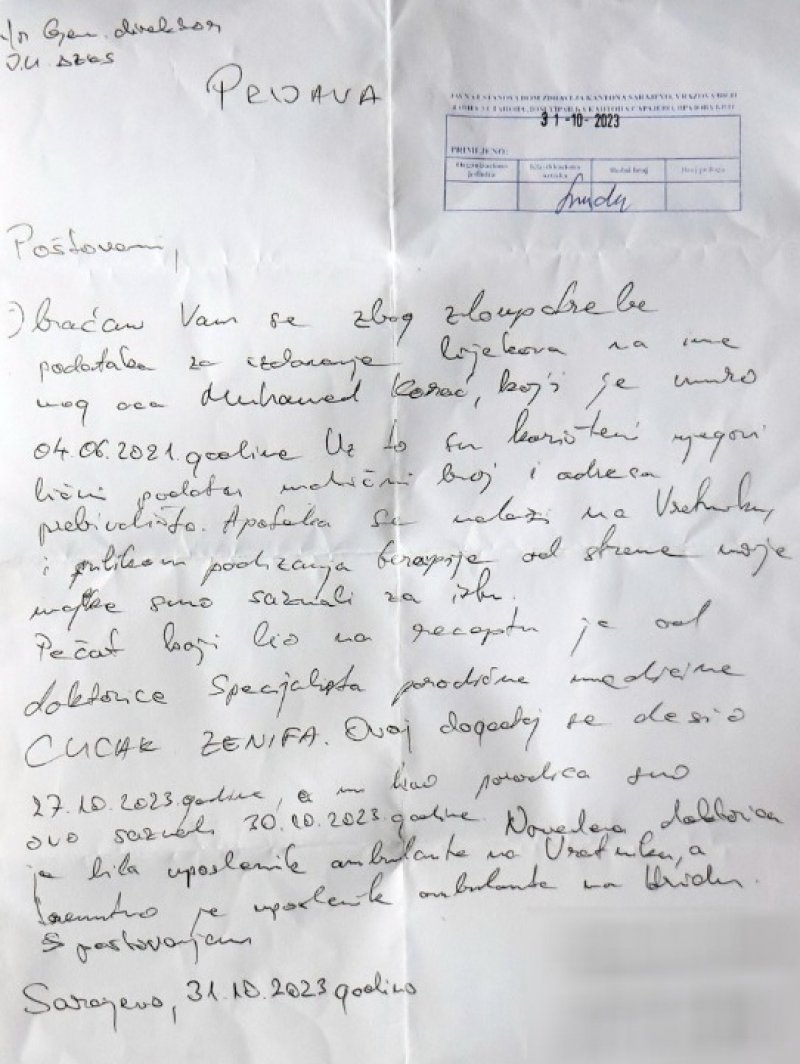 n/r Gen. direktor
J.U. DZKS
PRIJAVA
31-10-2023
PRIMLJENO:
Organizaciona jedinica
Klasifikaciona oznaka
Redni broj
Broj priloga
Poštovani,
Obraćam Vam se zbog zloupotrebe
podataka za izdavanje lijekova na ime
mog oca Muhamed Korać, koji je umro
04.06.2021.godine Uz to su korišteni njegovi
lični podatci matični broj i adresa
prebivališta. Apoteka se nalazi na Vratniku,
i prilikom podizanja terapije od strane moje
majke smo saznali za istu.
Pečat koji bio na receptu je od
doktorice specijalista porodične medicine
CUCAK ZENIFA. Ovaj događaj se desio
27.10.2023.godine, a mi kao porodica smo
ovo saznali 30.10.2023.godine. Navedena doktorica
je bila uposlenik ambulante na Vratniku, a
trenutno je uposlenik ambulante na
S poštovanjem
Sarajevo, 31.10.2023 godine